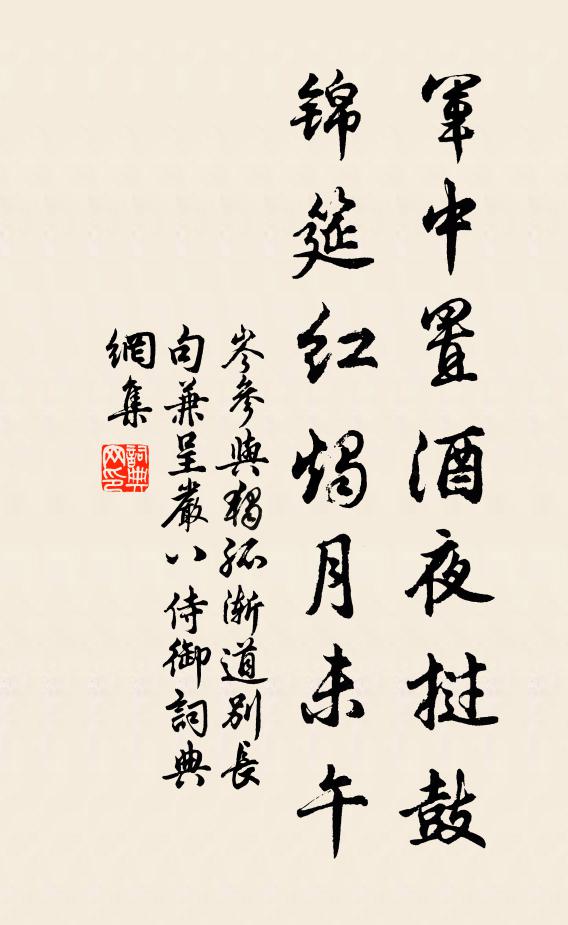 軍中置酒夜撾鼓
錦筵紅燭月未午
岑參與獨孤漸道別長
句兼呈嚴八侍御詞典
網集
詞典
网印